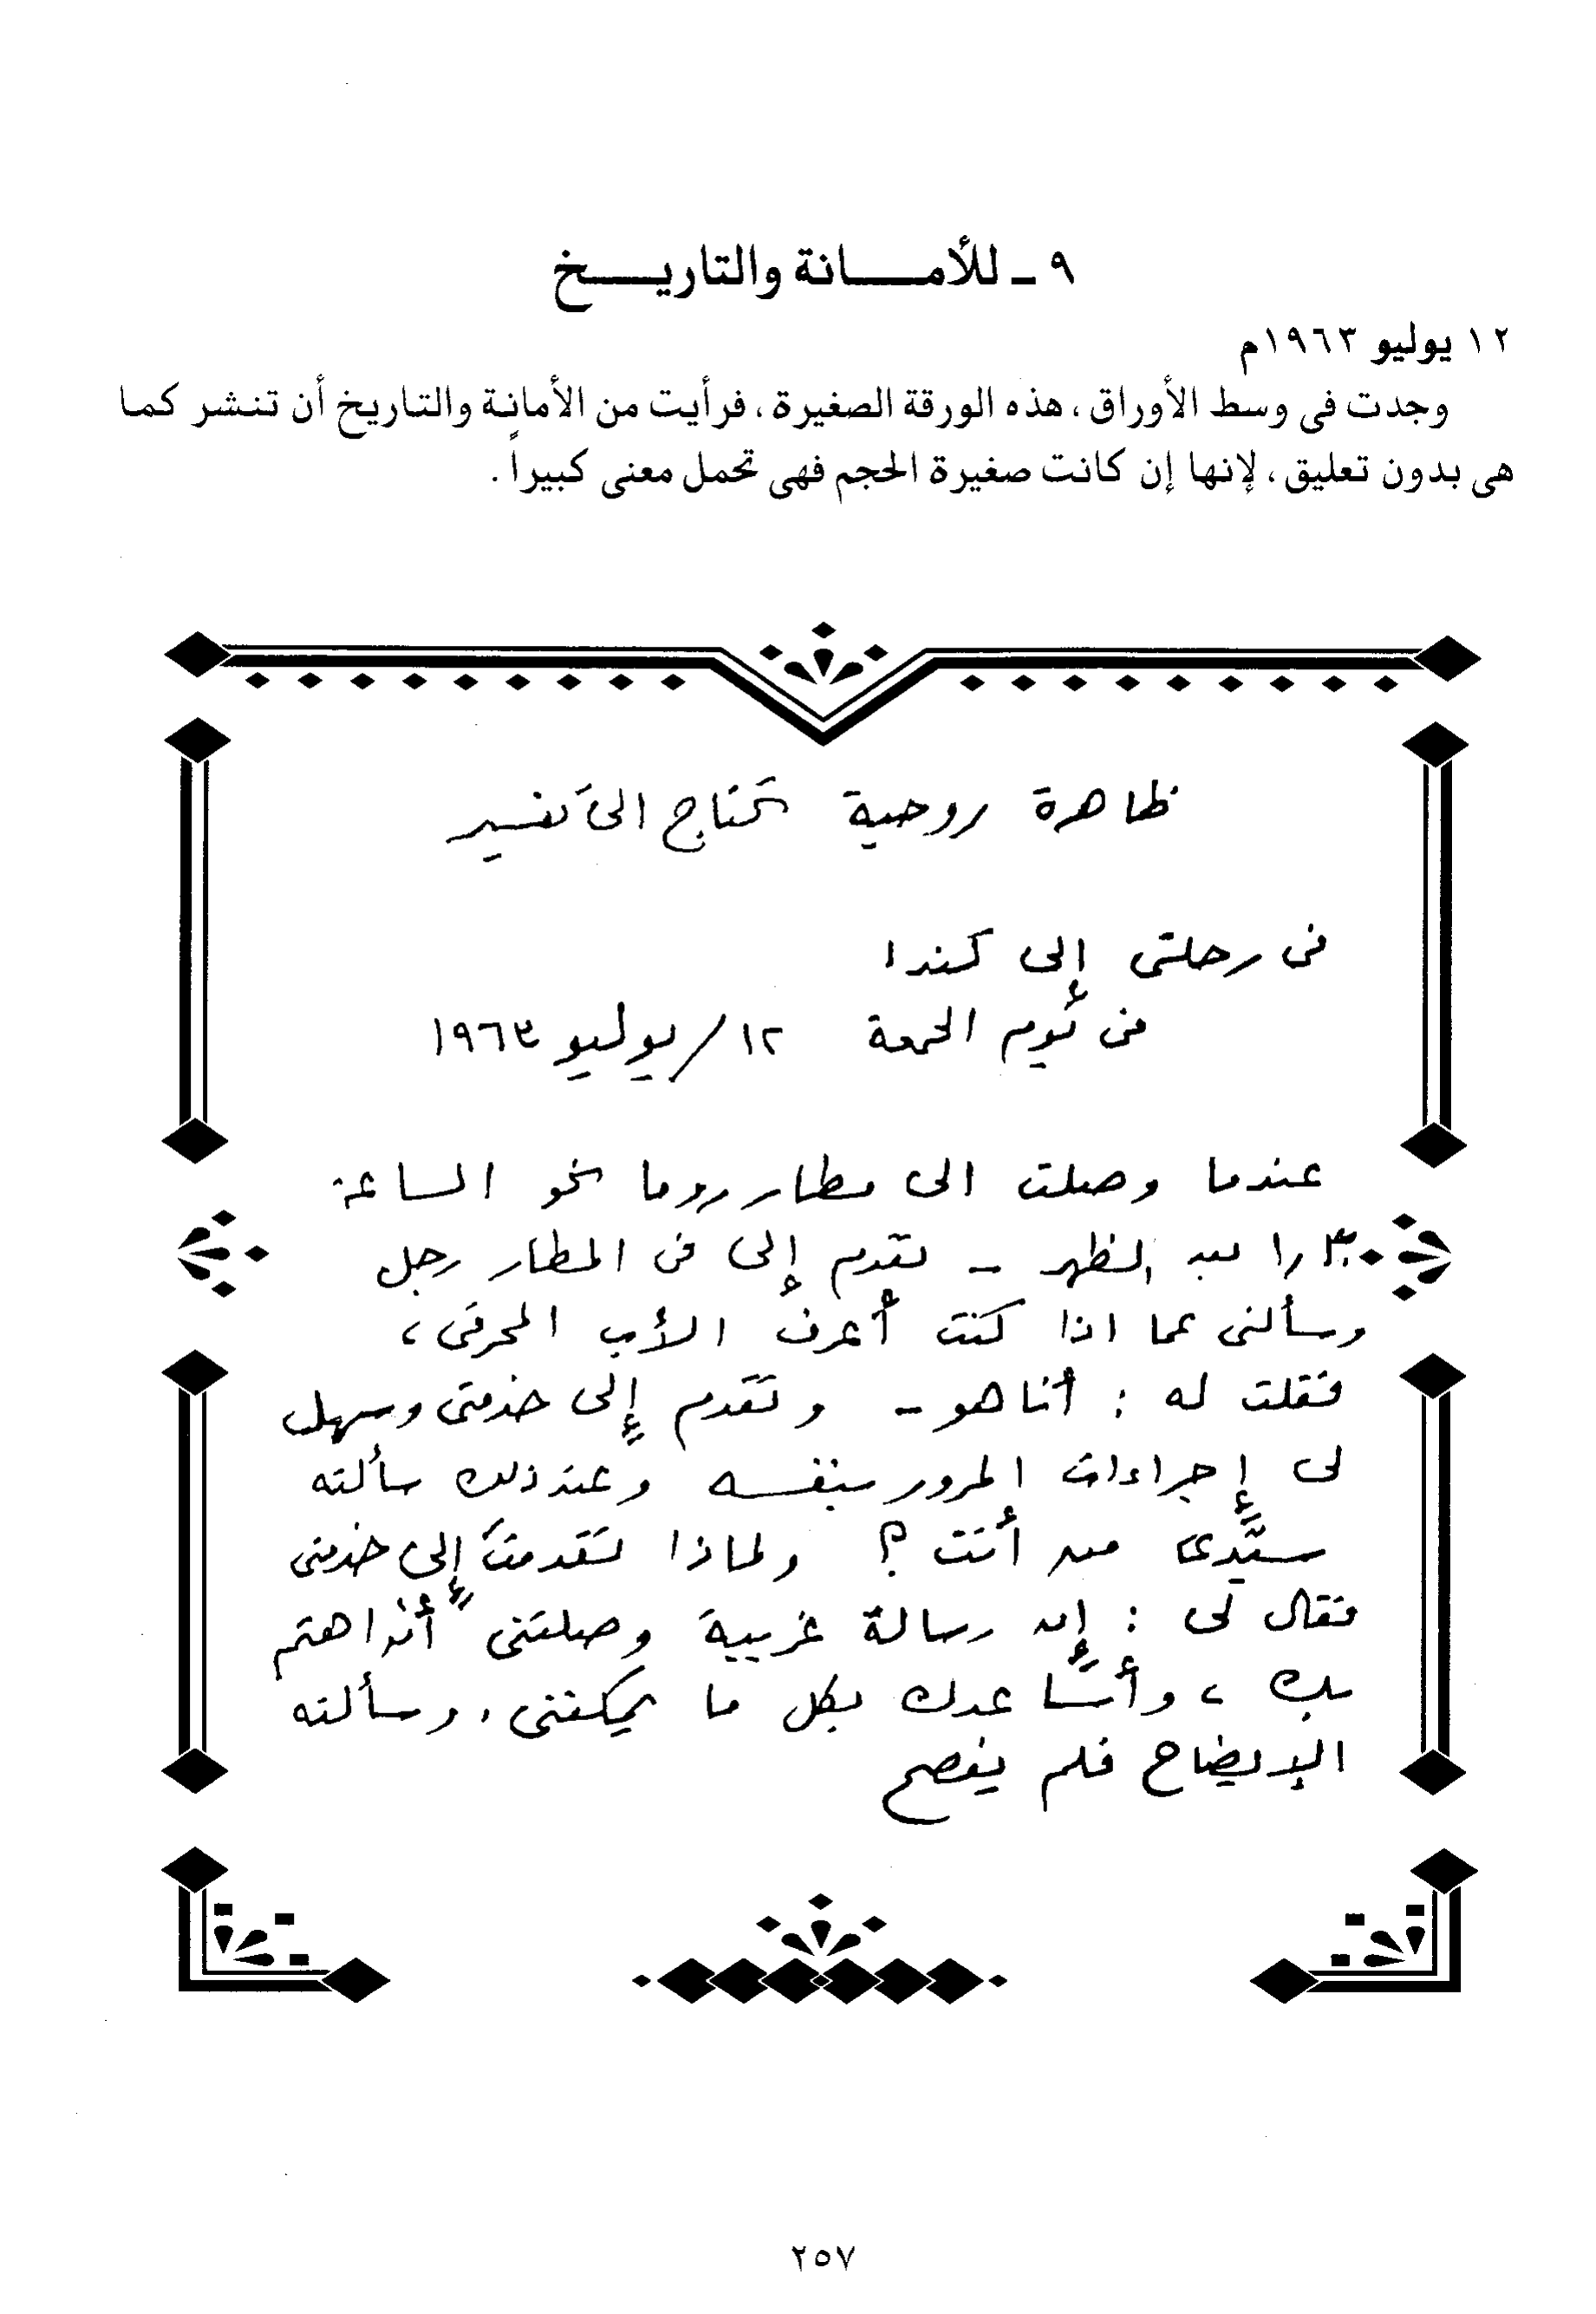 ٩ ـ للأمـــانة والتاريـــخ
١٢ يوليو ١٩٦٣م
وجدت فى وسط الأوراق، هذه الورقة الصغيرة، فرأيت من الأمانة والتاريخ أن تنشر كما
هى بدون تعليق، لإنها إن كانت صغيرة الحجم فهى تحمل معنى كبيراً.
ظاهرة روحية تحتاج الى تفسير
فى رحلتى إلى كندا
فى يوم الجمعة ١٢/يوليو ١٩٦٣
عندما وصلت الى مطار روما نحو الساعة
١٫٣٠ بعد الظهر ـ تقدم إلى فى المطار رجل
وسألنى عما اذا كنت أعرف الأب المحرقى،
فقلت له : أنا هو ـ وتقدم إلى خدمتى وسهل
لى إجراءات المرور بنفسه وعند ذلك سألته
سيّدى من أنت ؟ ولماذا تقدمت إلى خدمتى
فقال لى : إن رسالة غريبة وصلتنى "أن اهتم
بك، وأساعدك بكل ما يمكننى، وسألته
الإيضاح فلم يفصح
٢٥٧